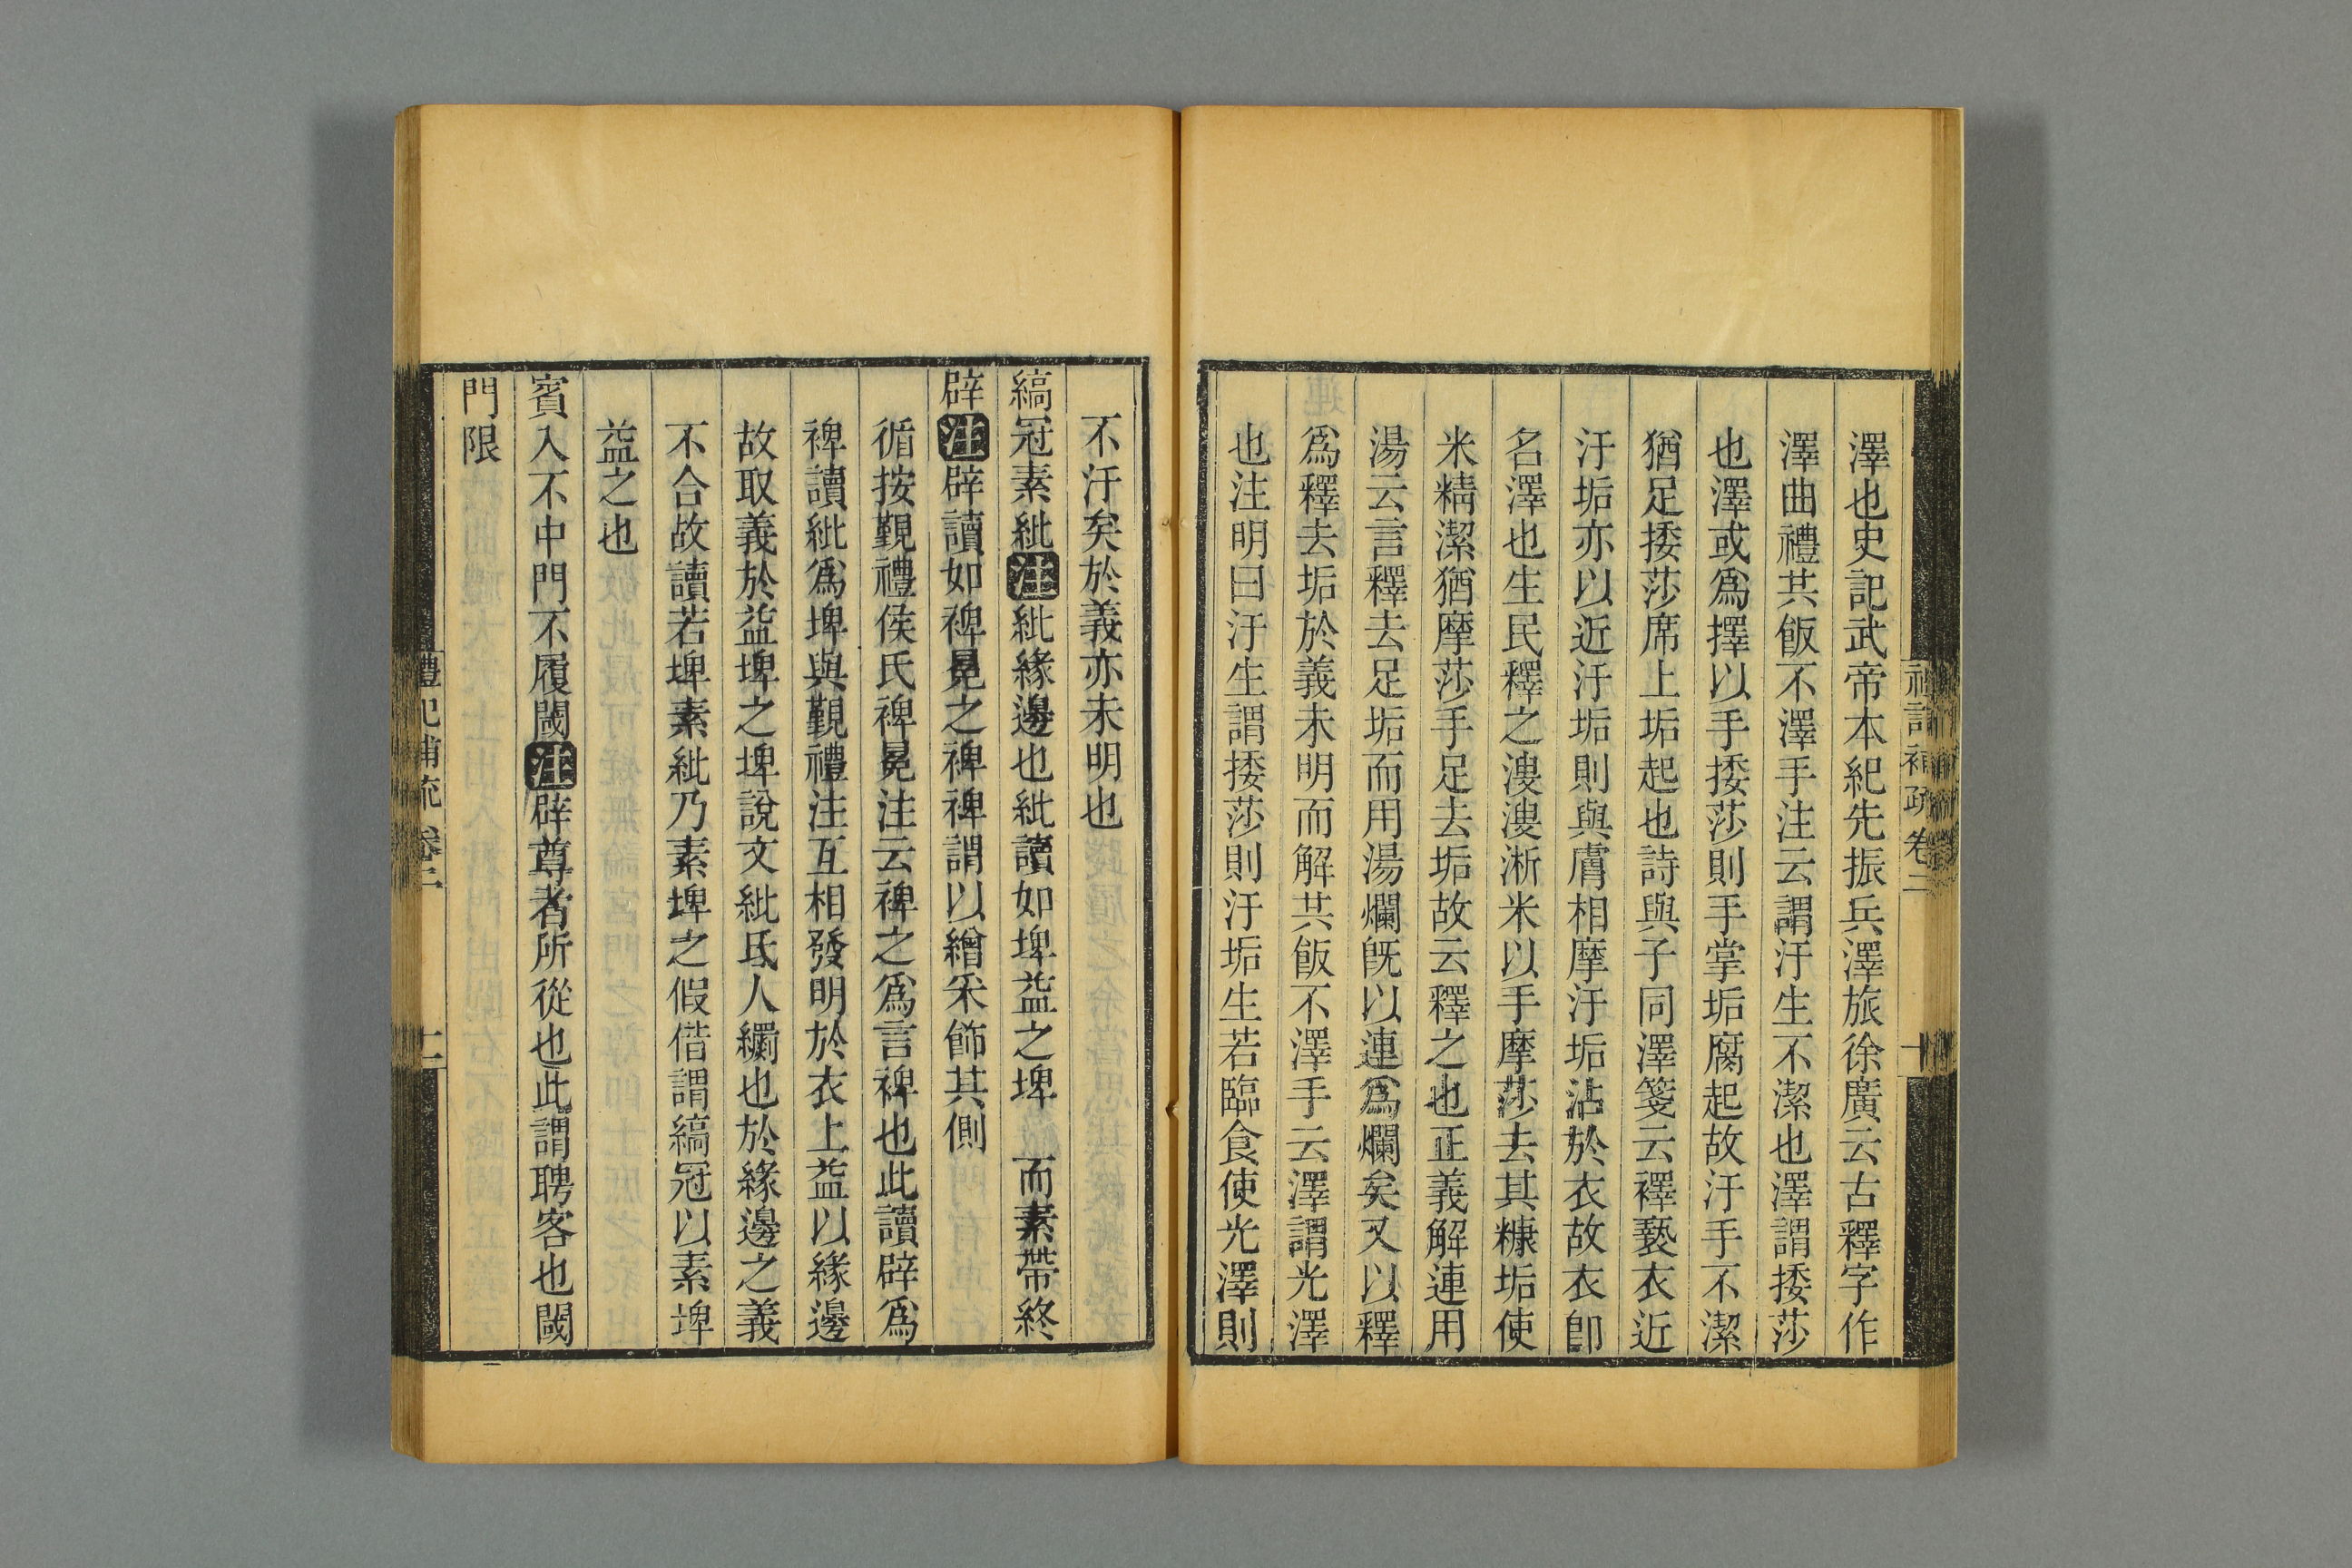 禮記補疏卷二
十
澤也史記武帝本紀先振兵澤旅徐廣云古釋字作
澤曲禮共飯不澤手注云謂汙生不潔也澤謂捼莎
也澤或爲擇以手捼莎則手掌垢腐起故汙手不潔
猶足捼莎席上垢起也詩與子同澤箋云襗褻衣近
汙垢亦以近汙垢則與膚相摩汙垢沾於衣故衣卽
名澤也生民釋之溲溲淅米以手摩莎去其糠垢使
米精潔猶摩莎手足去垢故云釋之也正義解連用
湯云言釋去足垢而用湯爛旣以連爲爛矣又以釋
爲釋去垢於義未明而解共飯不澤手云澤謂光澤
也注明曰汙生謂捼莎則汙垢生若臨食使光澤則
不汙矣於義亦未明也
縞冠素紕注紕緣邊也紕讀如埤益之埤 而素帶終
辟注辟讀如裨冕之裨裨謂以繒采飾其側
循按覲禮侯氏裨冕注云裨之爲言裨也此讀辟爲
裨讀紕爲埤與覲禮注互相發明於衣上益以緣邊
故取義於益埤之埤說文紕氐人繝也於緣邊之義
不合故讀若埤素紕乃素埤之假借謂縞冠以素埤
益之也
賓入不中門不履閾注辟尊者所從也此謂聘客也閾
門限
禮記補疏 卷二
十一